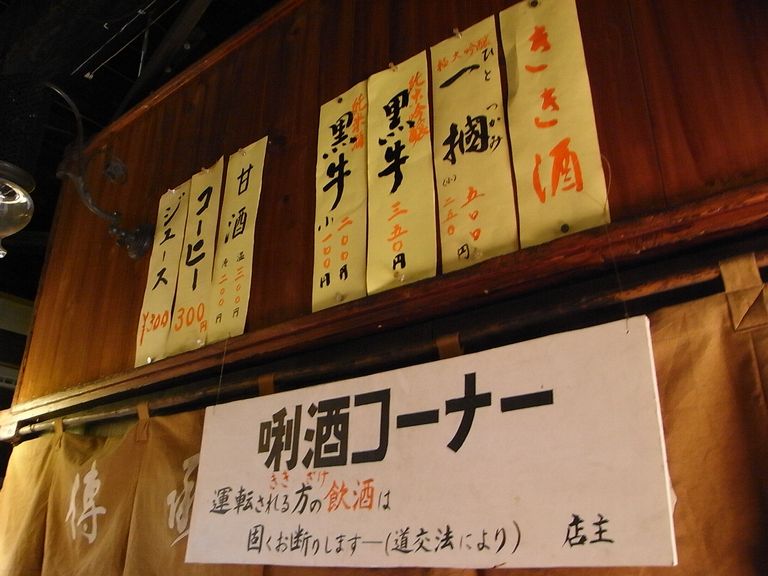 きき酒
大吟醸
一掴
ひとつかみ
五〇〇円
(小)二五〇
純米吟醸
黒牛
三五〇円
純米酒
黒牛
二〇〇円
小一〇〇円
甘酒
温三〇〇円
二〇〇円
コーヒー
300円
ジュース
¥300
唎酒コーナー
ききざけ
運転される方の飲酒は
固くお断りします―(道交法により)
店主
傳